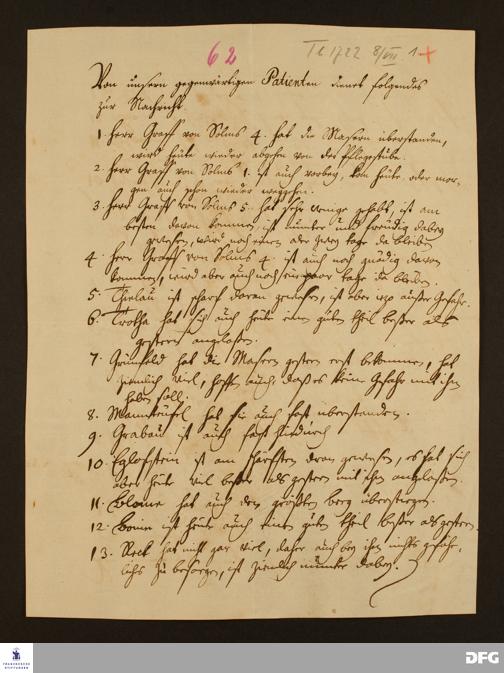 62
8/VII. 1
Von unsern gegenwärtigen Patienten dienet folgendes
zur Nachricht.
1. Herr Graff von Solms 4. hat die Masern überstanden,
wird heute wieder abgehen von der Pflegestube.
2. Herr Graff von Solms 1. ist auch vorbey, kom heute oder mor-
gen auch schon wieder weggehen.
3. Herr Graff von Solms 5. hat sehr wenige gehabt, ist am
besten davon kommen, ist munter und freudig dabey
gewesen, wird noch einen oder zwey tage da bleiben
4. Herr Graff von Solms 4. ist auch noch gnädig davon
kommen, wird aber auch noch ein paar tage da bleiben.
5. Thelau ist scharf daran gewesen, ist aber außer Gefahr.
6. Trotha hat sich auch heute einen guten theil beßer als
gestern angelaßen.
7. Grünfeld hat die Masern gestern erst bekommen, hat
ziemlich viel, hoffe auch, daß es keine Gefahr mit ihm
haben soll.
8. Mannteufel hat sie auch fast überstanden.
9. Grabau ist auch fast hindurch
10. Eglofstein ist am schärfsten dran gewesen, es hat sich
aber heute viel beßer als gestern mit ihm angelaßen.
11. Blome hat auch den größten berg überstiegen.
12. ist heute auch einen guten theil beßer als gestern.
13. Reck hat nicht gar viel, daher auch bey ihm nichts gefähr-
lichs zu besorgen, ist ziemlich munter dabey.
FRANCKESCHE
STIFTUNGEN
DFG